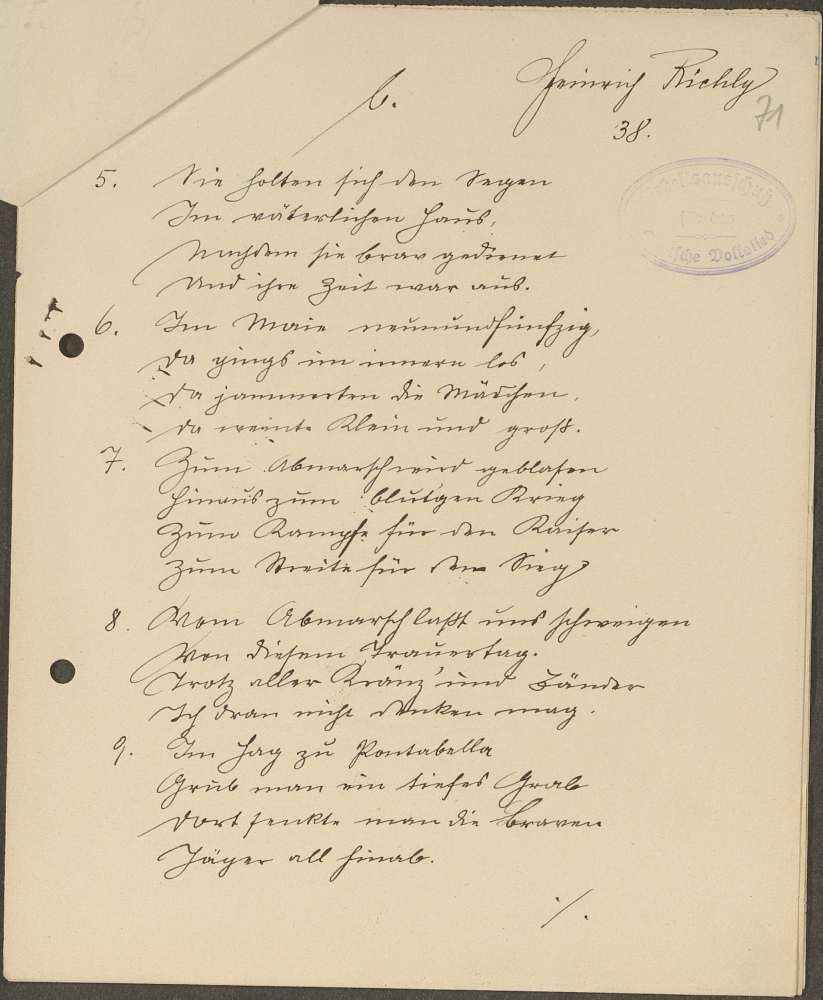 Heinrich Richly
6.
71
38.
5. Sie holten sich den Segen
Im väterlichen Haus,
Nachdem sie brav gedienet
Und ihre Zeit war aus.
6. Im Maie neunundfünfzig,
Da gings im innern los,
Da jammerten die Mädchen,
Da weinte Klein und groß.
7. Zum Abmarsch wird geblasen
Hinaus zum blut'gen Krieg
Zum Kampfe für den Kaiser
Zum Streite für den Sieg
8. Vom Abmarsch laßt uns schweigen
Von diesem Trauertag.
Trotz aller Kränz' und Bänder
Ich dran nicht denken mag.
9. Im Hag zu Pontabella
Grub man ein tiefes Grab
Dort senkte man die Braven
Jäger all hinab.
./.
Volkslied